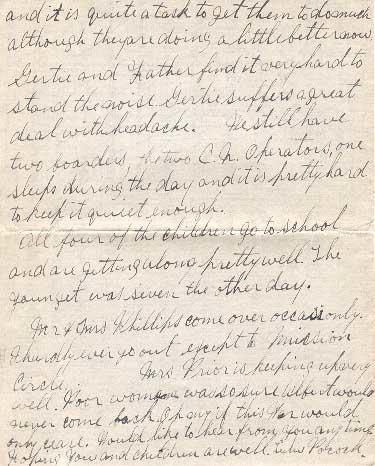 and it is quite a task to get them to do much
although they are doing a little better now.
Gertie and Father find it very hard to
stand the noise. Gertie suffers a great
deal with headache. We still have
two boarders, the two C.N. Operators, one
sleeps during the day and it is pretty hard
to keep it quiet enough.
All four of the children go to school
and are getting along pretty well. The
younget was seven the other day.
Mr & Mrs Phillips come over occasionly.
I hardly ever go out except to Mission
Circle. Mrs Prior is keeping up very
well. Poor woman was so sure Wilbert would
never come back. O pray if this War would
only ceare. Would like to hear from you anytime
Hoping You and children are well.